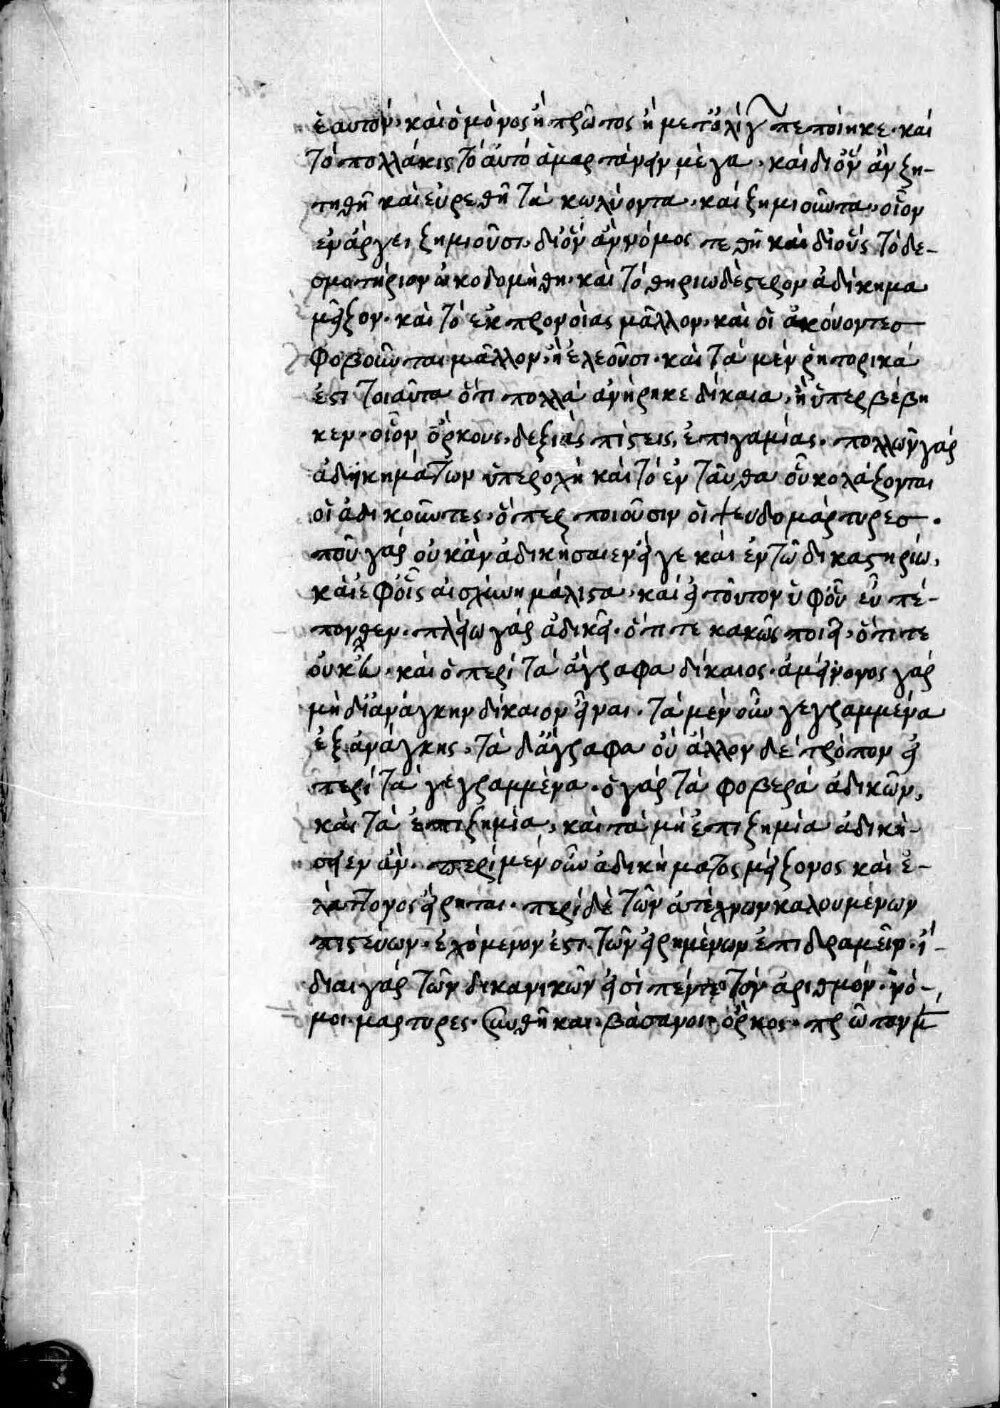 ἑαυτόν· καὶ ὁ μόνος ἢ πρῶτος ἢ μετ' ὀλίγων πεποίηκε· καὶ
τὸ πολλάκις τὸ αὐτὸ ἁμαρτάνειν μέγα· καὶ δι' ὃν ἂν ζη-
τηθῆ καὶ εὑρεθῆ τὰ κωλύοντα· καὶ ζημιοῦντα· οἷον
ἐν ἄργει ζημιοῦσι· δι' ὃν ἂν νόμος τεθῆ καὶ δι' οὓς τὸ δε-
σμωτήριον ὠκοδομήθη· καὶ τὸ θηριωδέστερον ἀδίκημα
μεῖζον· καὶ τὸ ἐκ προνοίας μᾶλλον· καὶ οἱ ἀκούοντες
φοβοῦνται μᾶλλον, ἢ ἐλεοῦσι· καὶ τὰ μὲν ῥητορικά
ἐστι τοιαῦτα ὅτι πολλὰ ἀνήρηκε δίκαια, ἢ ὑπερβέβη
κεν· οἷον ὅρκους· δεξιὰς πίστεις, ἐπιγαμίας· πολλῶν γὰρ
ἀδικημάτων ὑπεροχή καὶ τὸ ἐνταῦθα οὗ κολάζονται
οἱ ἀδικοῦντες· ὅπερ ποιοῦσιν οἱ ψευδομάρτυρες·
ποῦ γὰρ οὐκ ἂν ἀδικήσαιεν εἴγε καὶ ἐν τῶ δικαστηρίω,
καὶ ἐφ' οἷς αἰσχύνη μάλιστα· καὶ εἰ τοῦτον ὑφ' οὗ εὖ πέ-
πονθεν· πλείω γὰρ ἀδικεῖ· ὅτι τε κακῶς ποιεῖ, ὅτι τε
οὐκ εὖ· καὶ ὁ περὶ τὰ ἄγραφα δίκαιος· ἀμείνονος γὰρ
μὴ δι' ἀνάγκην δίκαιον εἶναι· τὰ μὲν οὖν γεγραμμένα
ἐξ ἀνάγκης, τὰ δ' ἄγραφα οὔ ἄλλον δὲ τρόπον εἰ
περὶ τὰ γεγραμμένα· ὁ γὰρ τὰ φοβερὰ ἀδικῶν,
καὶ τὰ ἐπιζήμια, καὶ τὰ μὴ ἐπιζήμια ἀδική-
σειεν ἄν· περὶ μὲν οὖν ἀδικήματος μείζονος καὶ ἐ-
λάττονος εἴρηται· περὶ δὲ τῶν ἀτέχνων καλουμένων
πίστεων· ἐχόμενον ἐστι τῶν εἰρημένων ἐπιδραμεῖν· ἴ-
διαι γὰρ τῶν δικανικῶν εἰσὶ πέντε τὸν ἀριθμόν· νό-
μοι· μάρτυρες· συνθῆκαι· βάσανοι· ὅρκος· πρῶτον μ